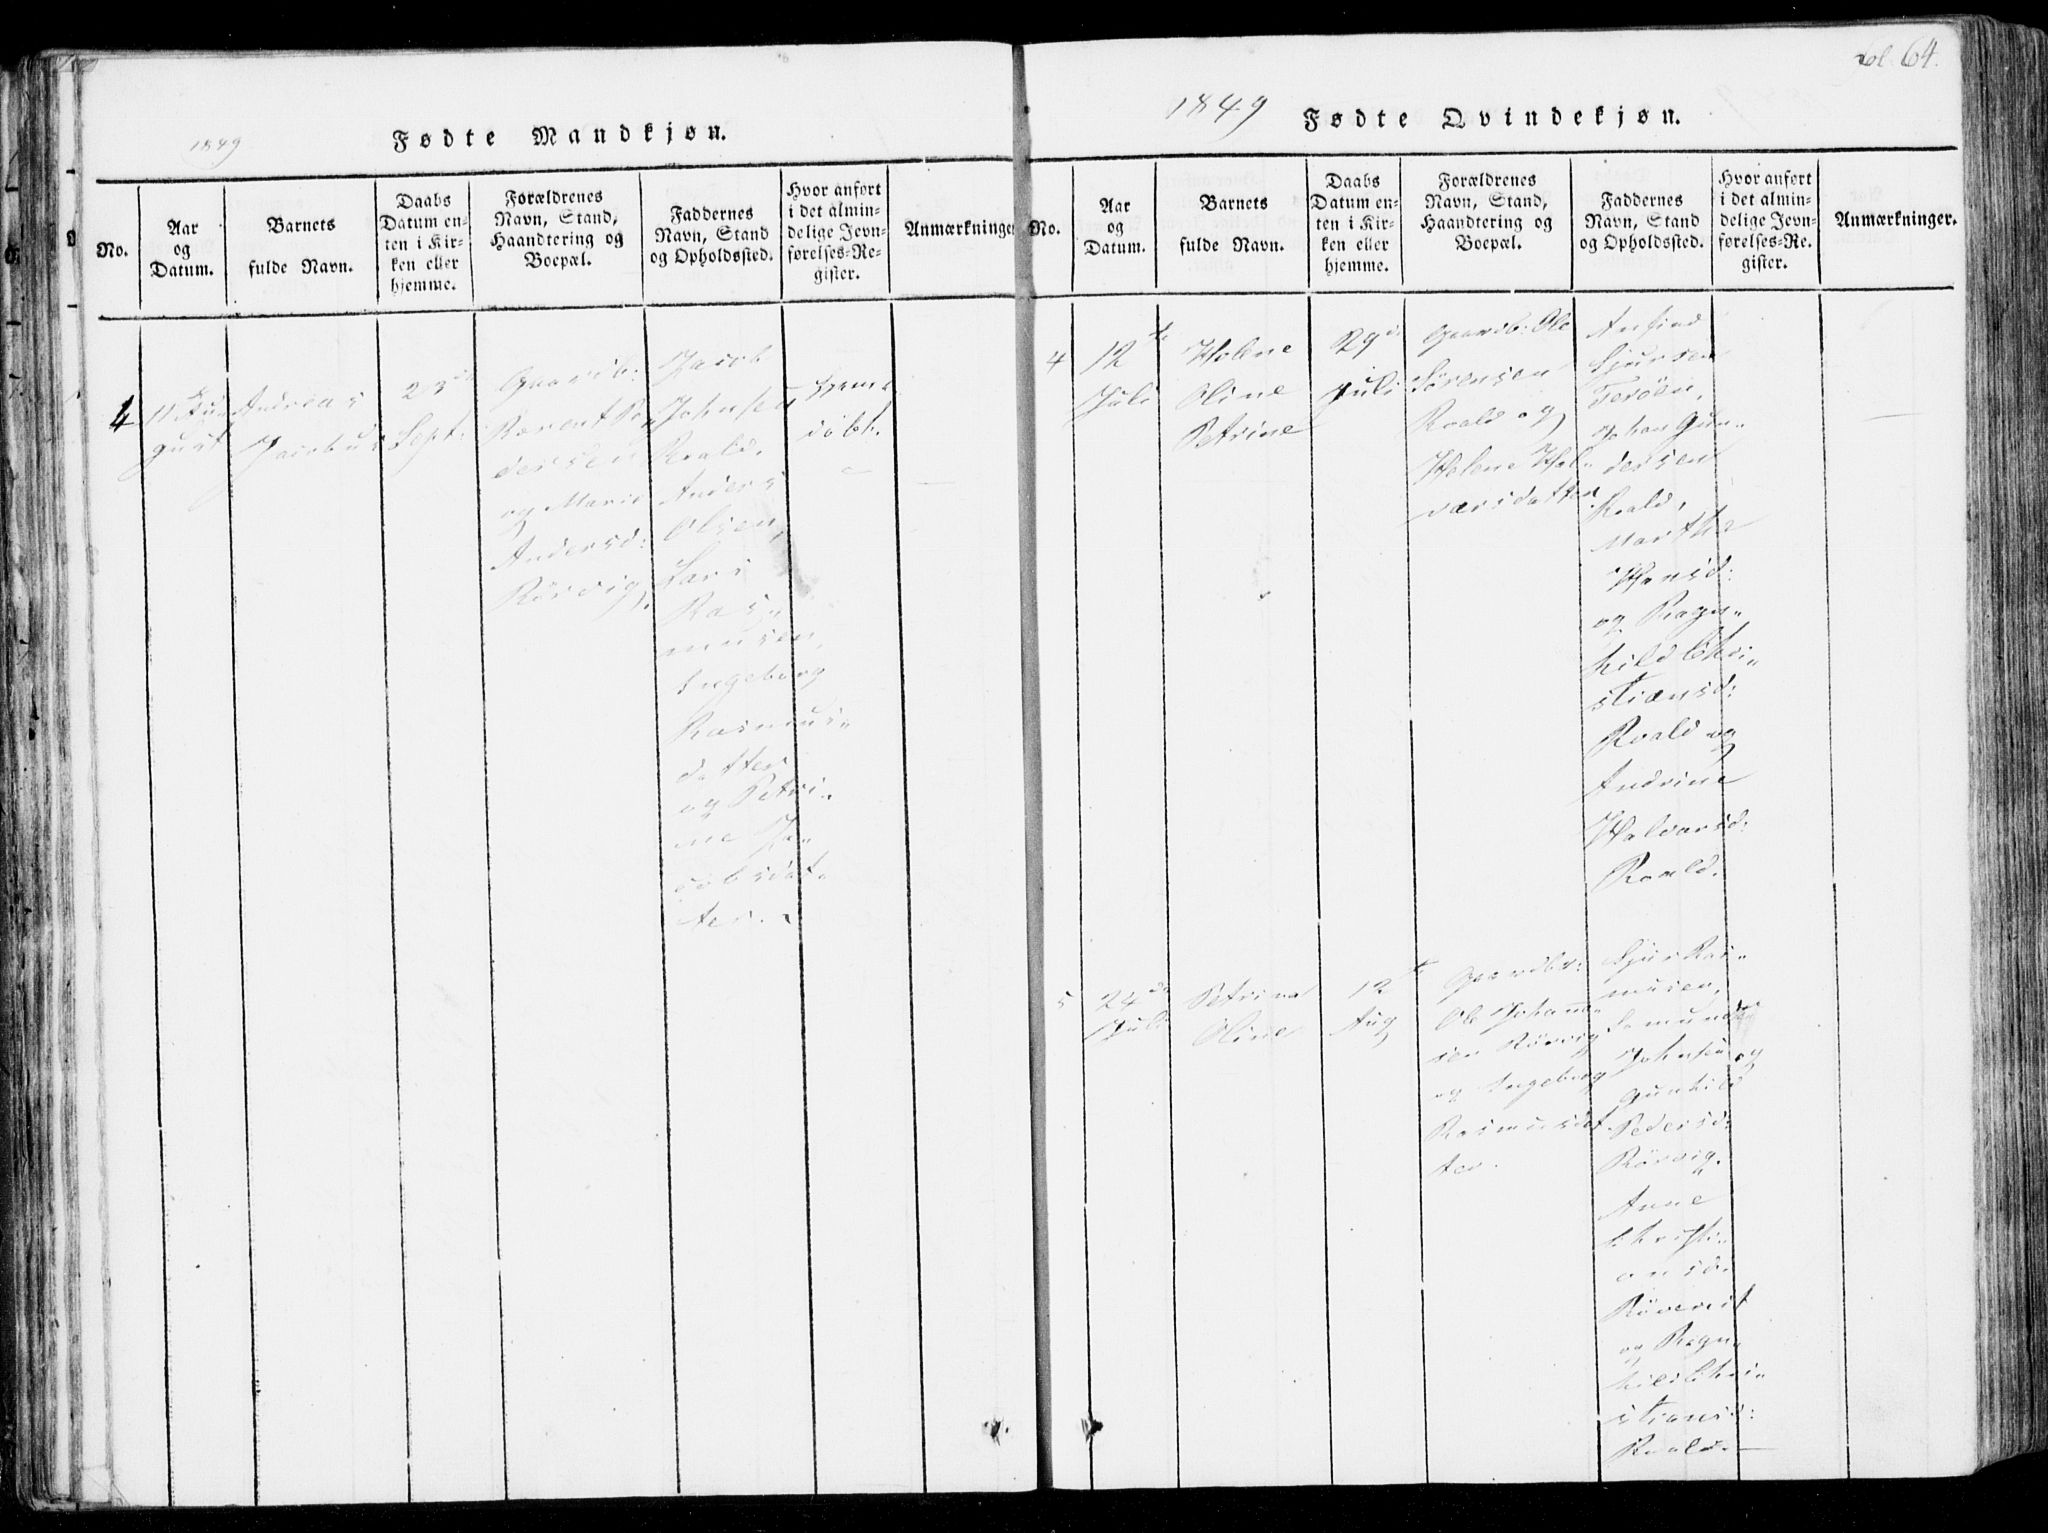 1849
Fødte Mandkjøn.
No.
Aar
og
Datum.
Barnets
fulde Navn.
Daabs
Datum en-
ten i Kir-
ken eller
hjemme.
Forældrenes
Navn, Stand,
Haandtering og
Boepæl.
Faddernes
Navn, Stand
og Opholdssted.
Hvor anført
i det almin-
delige Jevn-
førelses-Re-
gister.
Anmærkninger
4
11te Au
gust
Andreas
Jacobus
23de
Sept.
Gaardb:
Berent
dersen
og Marie
Andersd:
Rörvig.
Jacob
Johnsen
Roald,
Anders
Olsen,
Lars
Ras„
musen,
Ingeborg
Rasmus„
datter
og Petri„
ne Ja„
cobsdat„
ter.
hjemme
döbt.
fol. 64.
1849
Fødte Qvindekjøn.
No.
Aar
og
Datum.
Barnets
fulde Navn.
Daabs
Datum en-
ten i Kir-
ken eller
hjemme.
Forældrenes
Navn, Stand,
Haandtering og
Boepæl.
Faddernes
Navn, Stand
og Opholdssted.
Hvor anført
i det almin-
delige Jevn-
førelses-Re-
gister.
Anmærkninger.
4
12te
Juli
Helene
Oline
Petrine
29de
Juli
Gaardb: Ole
Sörensen
Roald og
Helene Hal„
varsdatter
Anfind
Sjursen
Johan Gun„
dersen
Roald,
Marthe
Hansd:
og Ragn„
hild Chri„
stiansd:
Roald og
Andrine
Halvarsd:
Roald.
5
24de
Juli
Petrine
Oline
12te
Aug
Gaardbr:
Ole Johann„
sen Rörvig
og Ingeborg
Rasmusdat
ter.
Sjur Ras„
musen,
Johnsen og
Gunhild
Pedersd:
Rörvig.
Anne
Christi„
ansd.
og Ragn„
hild Chri„
stiansd:
Roald.